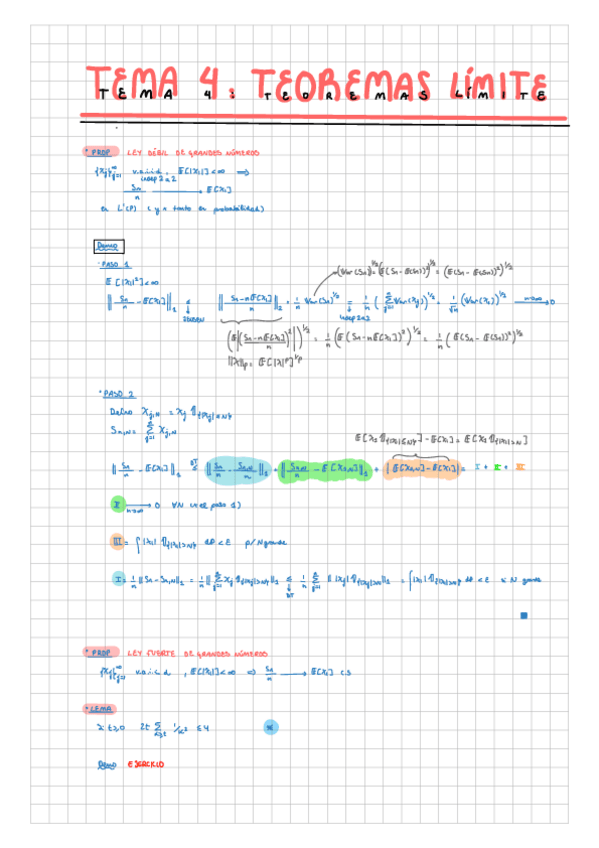 TEMA 4: TEOREMAS LÍMITE
* PROP LEY DÉBIL DE GRANDES NÚMEROS
{Xj}_{j=1}^∞ v.a.i.i.d , E[|X1|] < ∞ ⟹
indep 2 a 2
Sn/n ⟶ E[X1]
en L¹(P) ( y ∴ tanto en probabilidad)
Demo
· PASO 1
(Var(Sn))^{1/2} = (E(Sn - E(Sn))²)^{1/2} = (E(Sn - E(Sn))²)^{1/2}
E[|X1|²] < ∞
‖Sn/n - E[X1]‖₁ ≤ ‖(Sn - nE[X1])/n‖₂ = 1/n Var(Sn)^{1/2} = 1/n (Σ_{j=1}^n Var(Xj))^{1/2} = 1/√n (Var(X1))^{1/2} ⟶ 0
JENSEN
indep 2 a 2
n→∞
(E|(Sn - nE[X1])/n|²)^{1/2} = 1/n (E(Sn - nE[X1])²)^{1/2} = 1/n (E(Sn - E(Sn))²)^{1/2}
‖X‖p = E[|X|^p]^{1/p}
· PASO 2
Defino Xj,N = Xj 𝟙{|Xj| ≤ N}
Sn,N = Σ_{j=1}^n Xj,N
E[X1 𝟙{|X1| ≤ N}] - E[X1] = E[X1 𝟙{|X1| > N}]
‖Sn/n - E[X1]‖₁ ≤ ‖Sn/n - Sn,N/n‖₁ + ‖Sn,N/n - E[X1,N]‖₁ + |E[X1,N] - E[X1]| = I + II + III
DT
II ⟶ 0 ∀N (x el paso 1)
n→∞
III = ∫|X1| 𝟙{|X1|>N} dP < ε p/ N grande
I = 1/n ‖Sn - Sn,N‖₁ = 1/n ‖Σ_{j=1}^n Xj 𝟙{|Xj|>N}‖₁ ≤ 1/n Σ_{j=1}^n ‖|Xj| 𝟙{|Xj|>N}‖₁ = ∫|X1| 𝟙{|X1|>N} dP < ε x N grande
DT
* PROP LEY FUERTE DE GRANDES NÚMEROS
{Xj}_{j=1}^∞ v.a.i.i.d , E[|X1|] < ∞ ⟹ Sn/n ⟶ E[X1] c.s
* LEMA
Si t ≥ 0 2t Σ_{k>t} 1/k² ≤ 4 *
Demo EJERCICIO